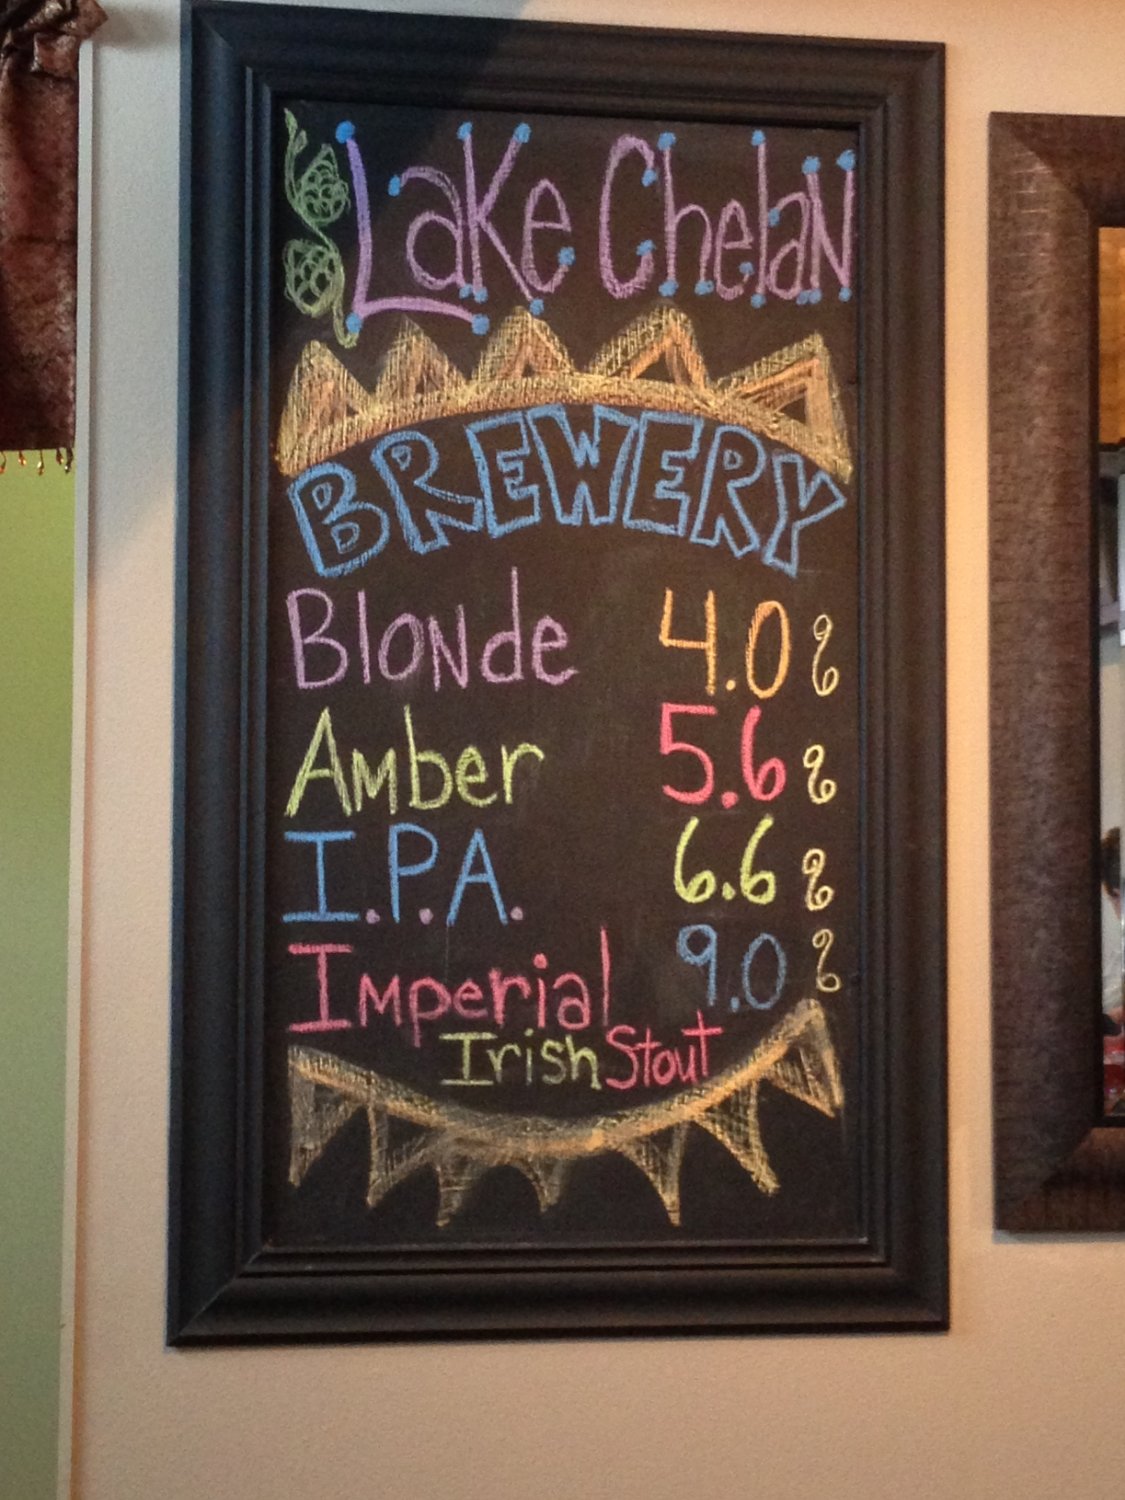 Lake Chelan
BREWERY
Blonde 4.0 %
Amber 5.6 %
I.P.A. 6.6 %
Imperial 9.0 %
Irish Stout